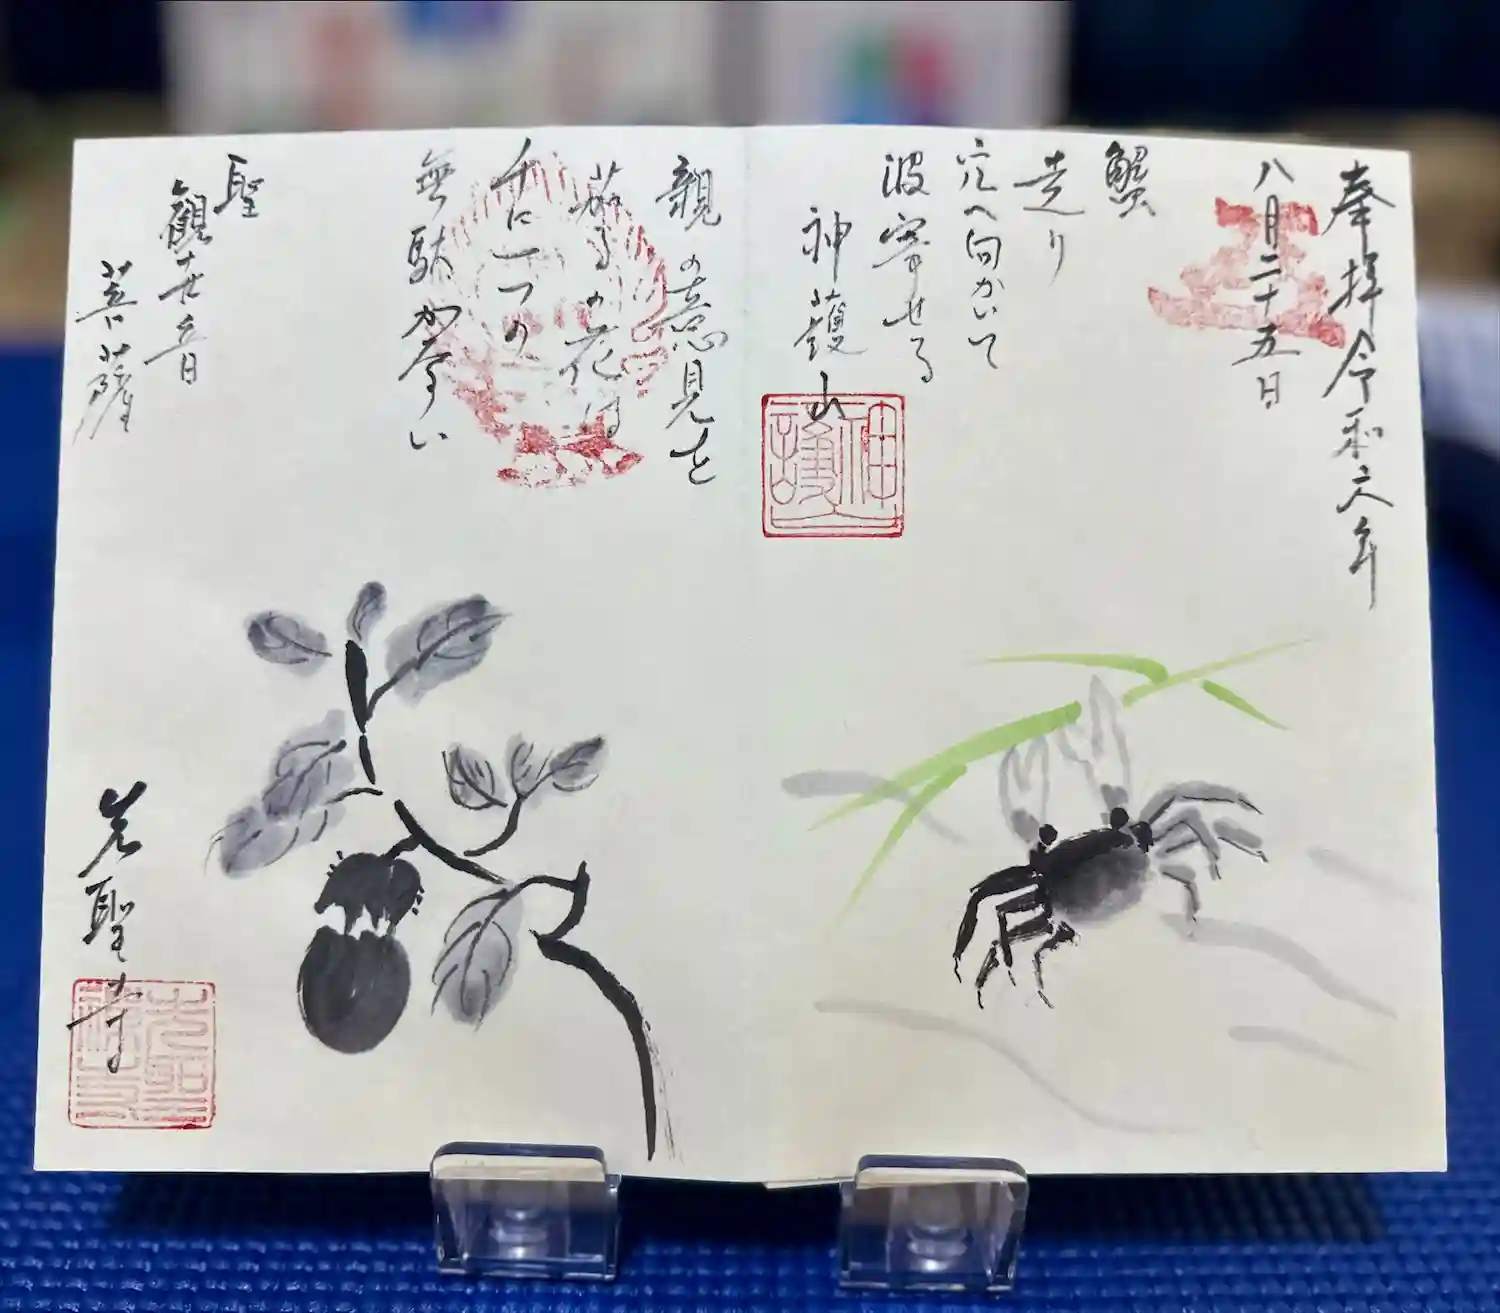 奉拝令和六年
八月二十五日
蟹
走り
穴へ向かいて
波寄せる
神護山
親の意見と
茄子の花は
千に一つの
無駄がない
聖
觀世音
菩薩
聖寺